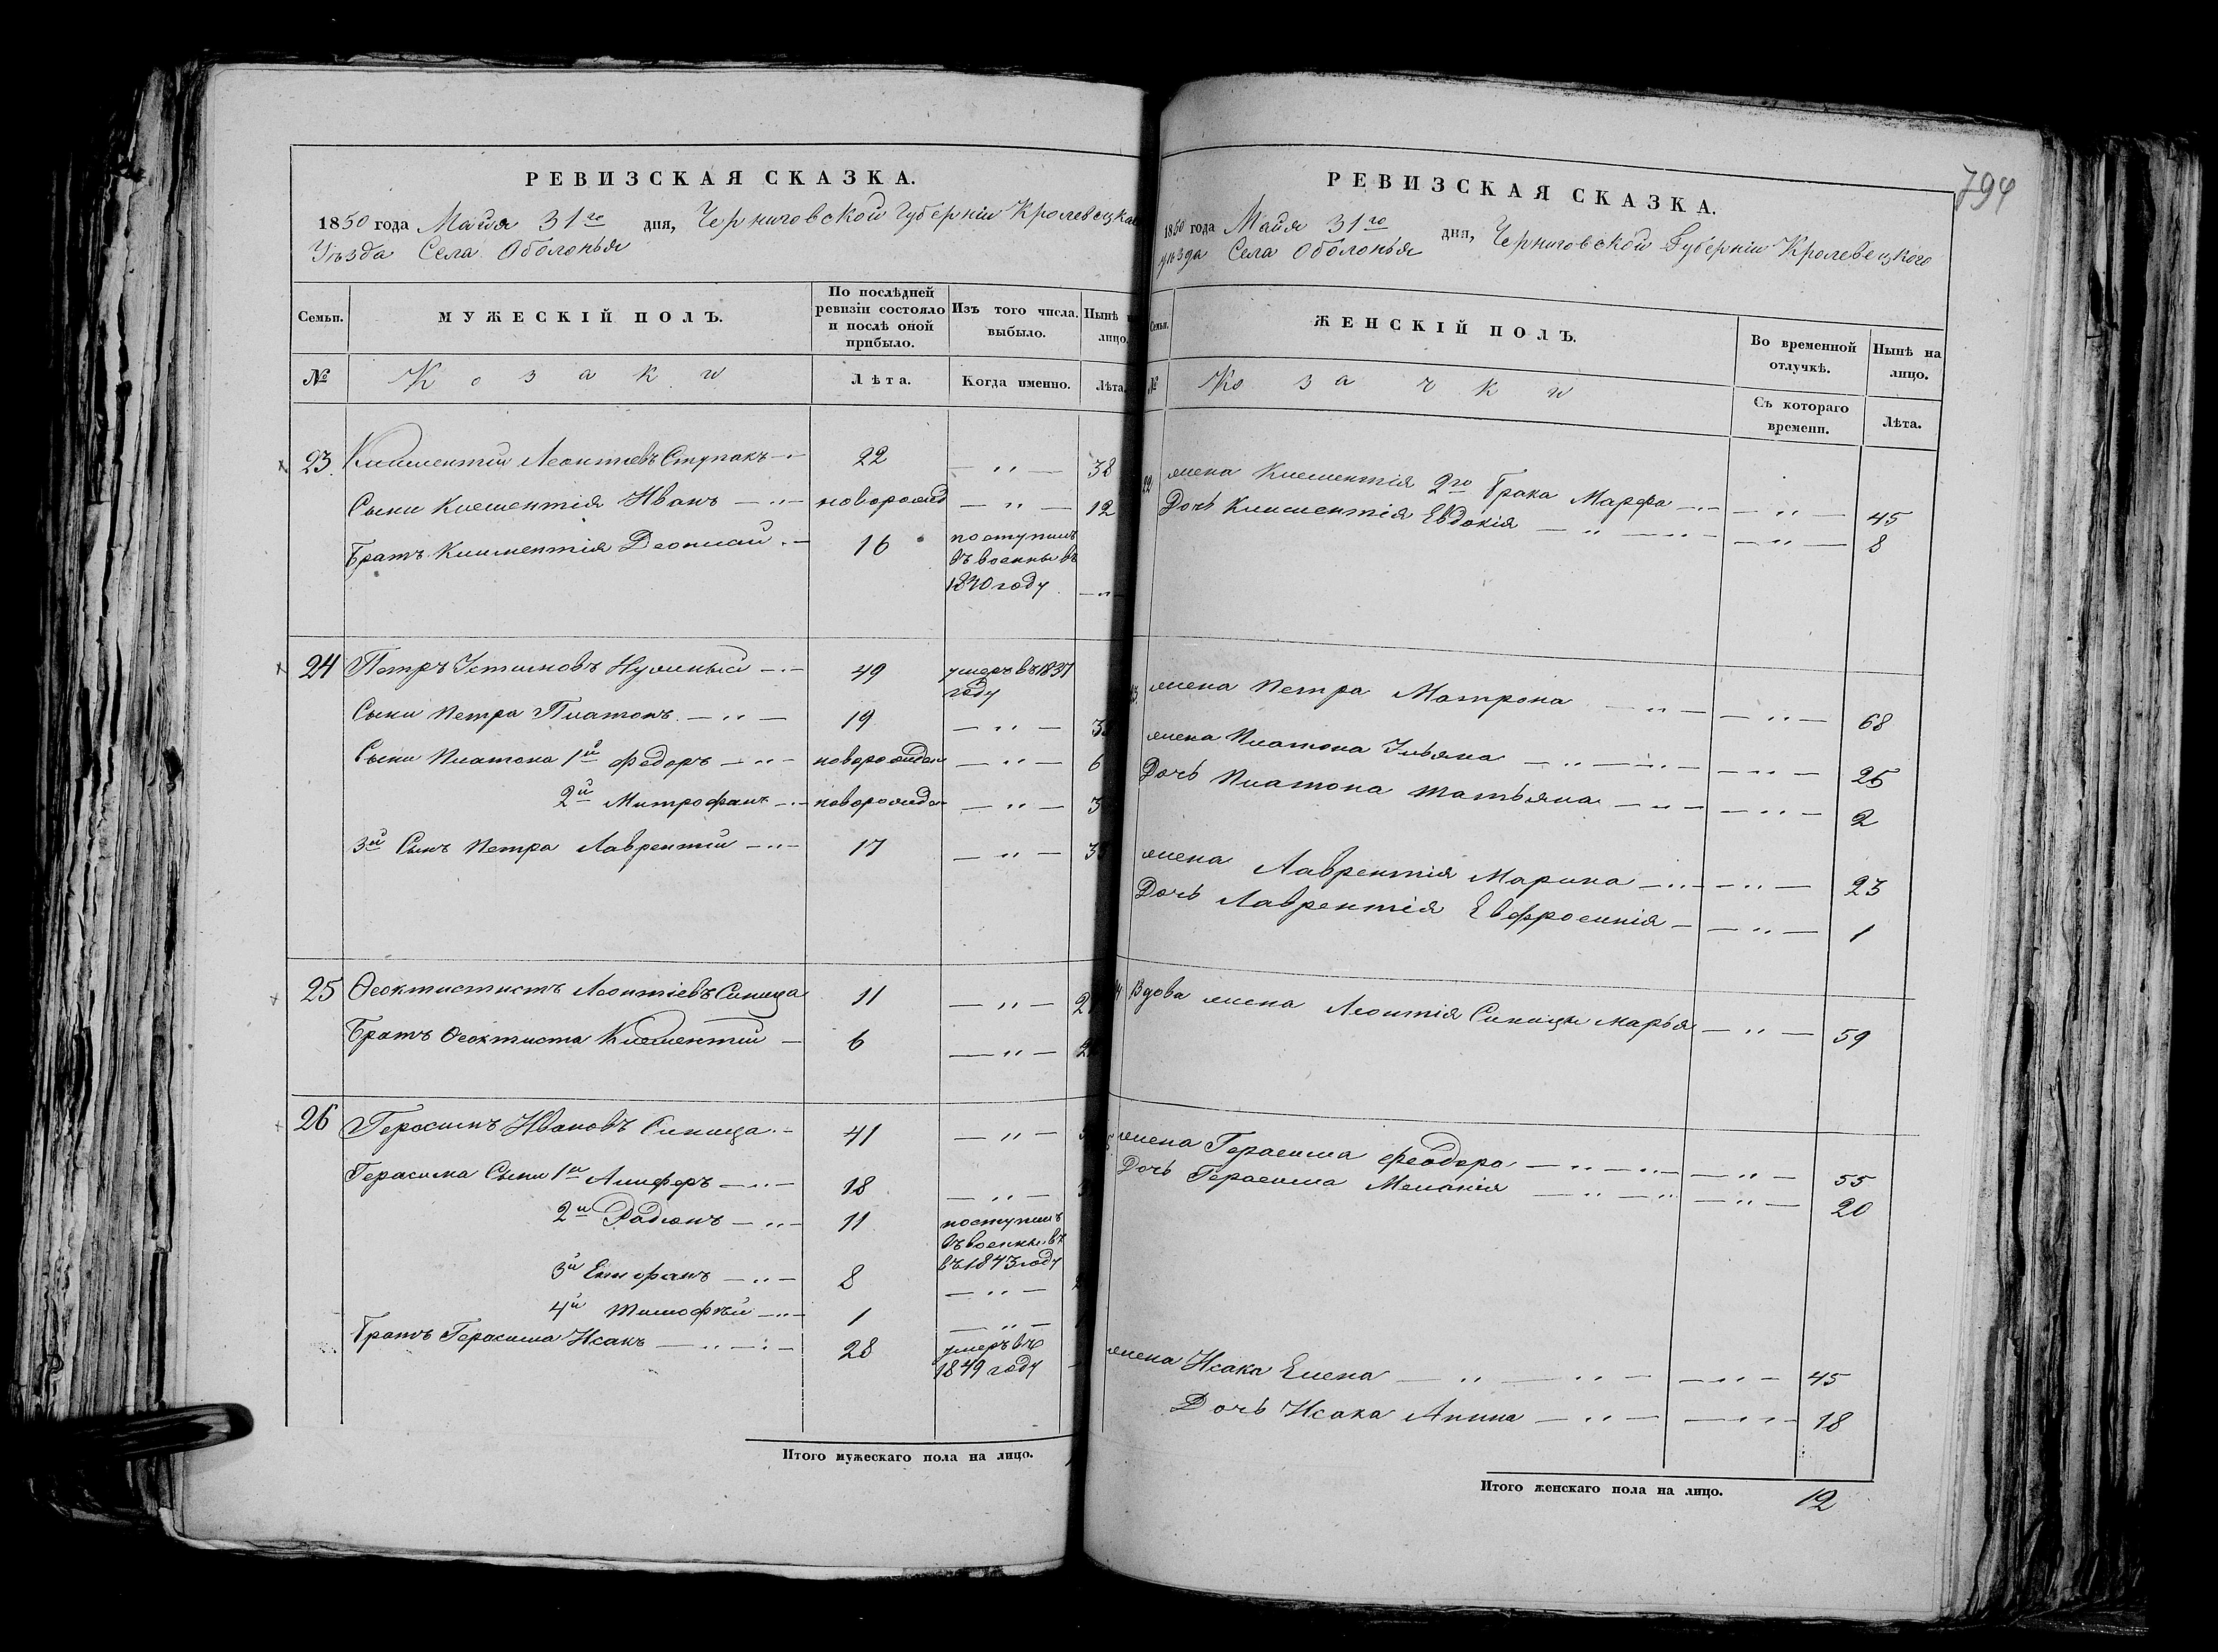 РЕВИЗСКАЯ СКАЗКА.
1850 года Майя 31го дня, Черниговской Губерніи Кролевецкаго
Уѣзда Села Оболонья
Семьи.
МУЖЕСКІЙ ПОЛЪ.
По послѣдней ревизіи состояло и послѣ оной прибыло.
Изъ того числа выбыло.
Нынѣ на лицо.
№
Козаки
Лѣта.
Когда именно.
Лѣта.
23. Климентій Леонтіевъ Ступакъ — 22 — " — 38
Сынъ Климентія Иванъ — " — новорожд — " — 12
Братъ Климентія Деонисій — 16 поступилъ
въ военны въ
1840 году — " —
24 Петръ Устиновъ Нужный — 49 умеръ въ 1837
году
Сынъ Петра Платонъ — " — 19 — " — 3
Сыны Платона 1й Федоръ — " — новорожден — " — 6
2й Митрофанъ — новорожден — " — 3
3й Сынъ Петра Лаврентій — " — 17 — " — 3
25 Ѳеоктистистъ Леонтіевъ Синица 11 — " — 2
Братъ Ѳеоктиста Климентий — 6 — " — 2
26 Герасимъ Ивановъ Синица — 41 — " —
Герасима Сыны 1й Алиферъ — " — 18 — " —
2й Радіонъ — " — 11 поступилъ
въ военны въ
въ 1843 году
3й Епифанъ — " — 8 — " —
4й Тимофѣй — " — 1 — " —
Братъ Герасима Исакъ — " — 28 умеръ въ
1849 году
Итого мужескаго пола на лицо.
794
РЕВИЗСКАЯ СКАЗКА.
1850 года Майя 31го дня, Черниговской Губерніи Кролевецкого
уѣзда Села Оболонья
Семьи.
ЖЕНСКІЙ ПОЛЪ.
Во временной отлучкѣ.
Нынѣ на лицо.
№
Козачки
Съ котораго времени.
Лѣта.
жена Климентія 2го брака Марфа — " — 45
Дочь Климентія Евдокія — " — " — 8
жена Петра Матрона — " — " — 68
жена Платона Ульяна — " — " — 25
Дочь Платона Татьяна — " — " — 2
жена Лаврентія Марина — " — " — 23
Дочь Лаврентія Евфросинія — " — 1
Вдова жена Леонтія Синицы марья — " — 59
жена Герасима Феодора — " — " — 55
Дочь Герасима Меланія — " — " — 20
жена Исака Елена — " — " — 45
Дочь Исака Анна — " — " — 18
Итого женскаго пола на лицо. 12